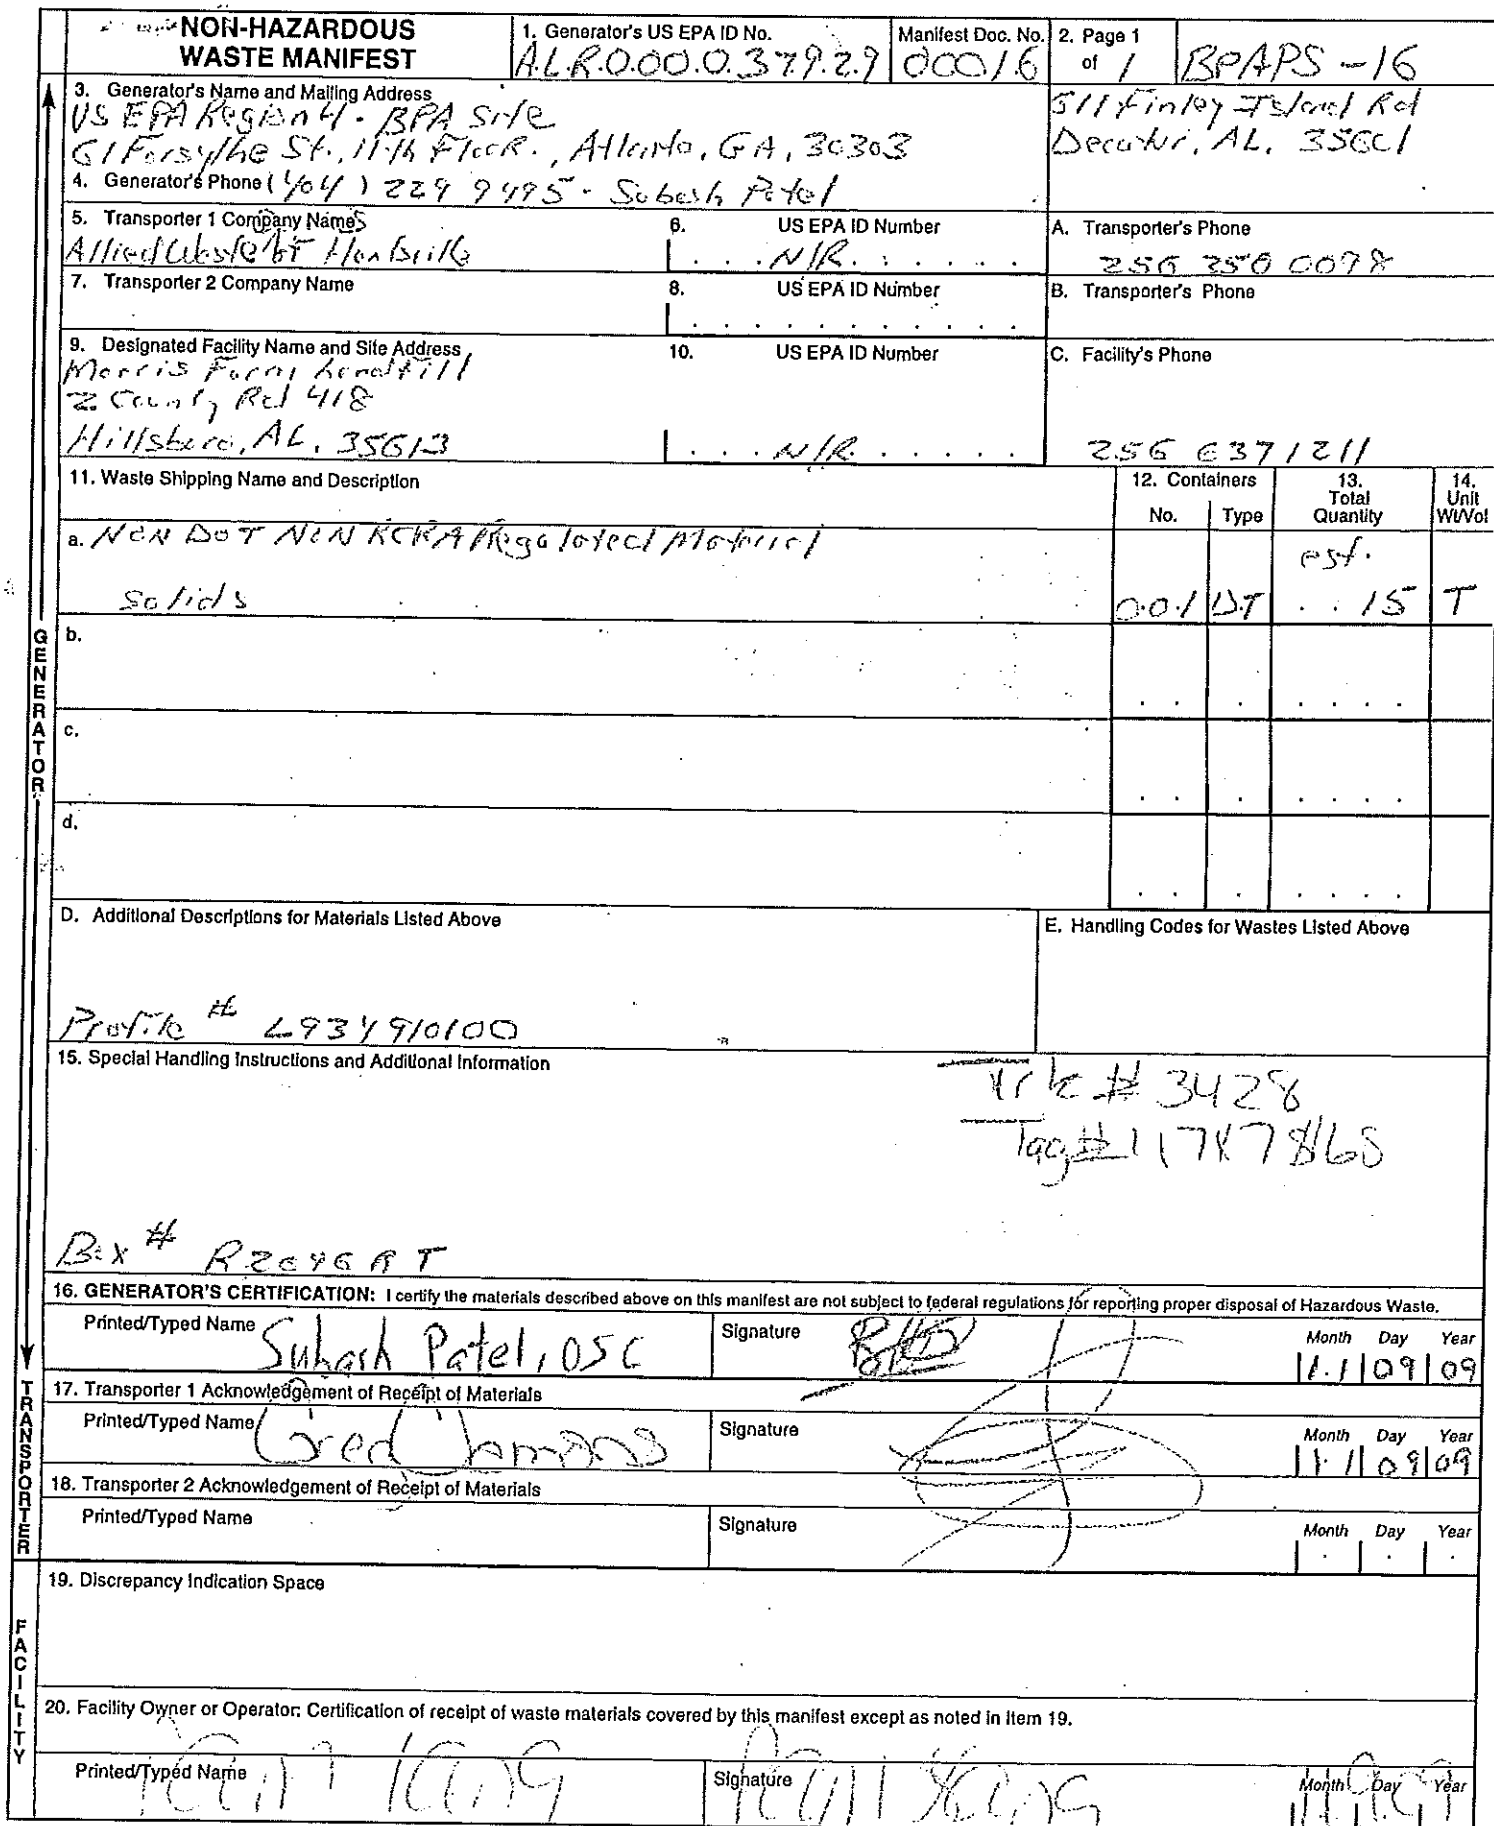 NON-HAZARDOUS
WASTE MANIFEST
1. Generator's US EPA ID No.
A.L.R.0.0.0.0.3.7.9.2.9
Manifest Doc. No.
00016
2. Page 1
of 1
BPAPS-16
3. Generator's Name and Mailing Address
US EPA Region 4 - BPA Site
61 Forsythe St., 11th Floor., Atlanta, GA, 30303
511 Finley Island Rd
Decatur, AL. 35601
4. Generator's Phone (404) 229 9495 - Subash Patel
5. Transporter 1 Company Names
Allied Waste of Huntsville
6. US EPA ID Number
N/R
A. Transporter's Phone
256 350 0098
7. Transporter 2 Company Name
8. US EPA ID Number
B. Transporter's Phone
9. Designated Facility Name and Site Address
Morris Farm Landfill
2 County Rd 418
Hillsboro, AL. 35613
10. US EPA ID Number
N/R
C. Facility's Phone
256 637 1211
11. Waste Shipping Name and Description
12. Containers
No.
Type
13.
Total
Quantity
14.
Unit
Wt/Vol
a. NON DOT NON RCRA Regulated Material
est.
solids
0.0.1 D.T 15 T
b.
c.
d.
D. Additional Descriptions for Materials Listed Above
E. Handling Codes for Wastes Listed Above
Profile # L934910100
15. Special Handling Instructions and Additional Information
Trk # 3428
Tag#
Box # R2046AT
16. GENERATOR'S CERTIFICATION: I certify the materials described above on this manifest are not subject to federal regulations for reporting proper disposal of Hazardous Waste.
Printed/Typed Name
Subash Patel, OSC
Signature
Month Day Year
1.1 09 09
17. Transporter 1 Acknowledgement of Receipt of Materials
Printed/Typed Name
Signature
Month Day Year
1.1 09 09
18. Transporter 2 Acknowledgement of Receipt of Materials
Printed/Typed Name
Signature
Month Day Year
19. Discrepancy Indication Space
20. Facility Owner or Operator: Certification of receipt of waste materials covered by this manifest except as noted in Item 19.
Printed/Typed Name
Signature
Month Day Year
GENERATOR
TRANSPORTER
FACILITY